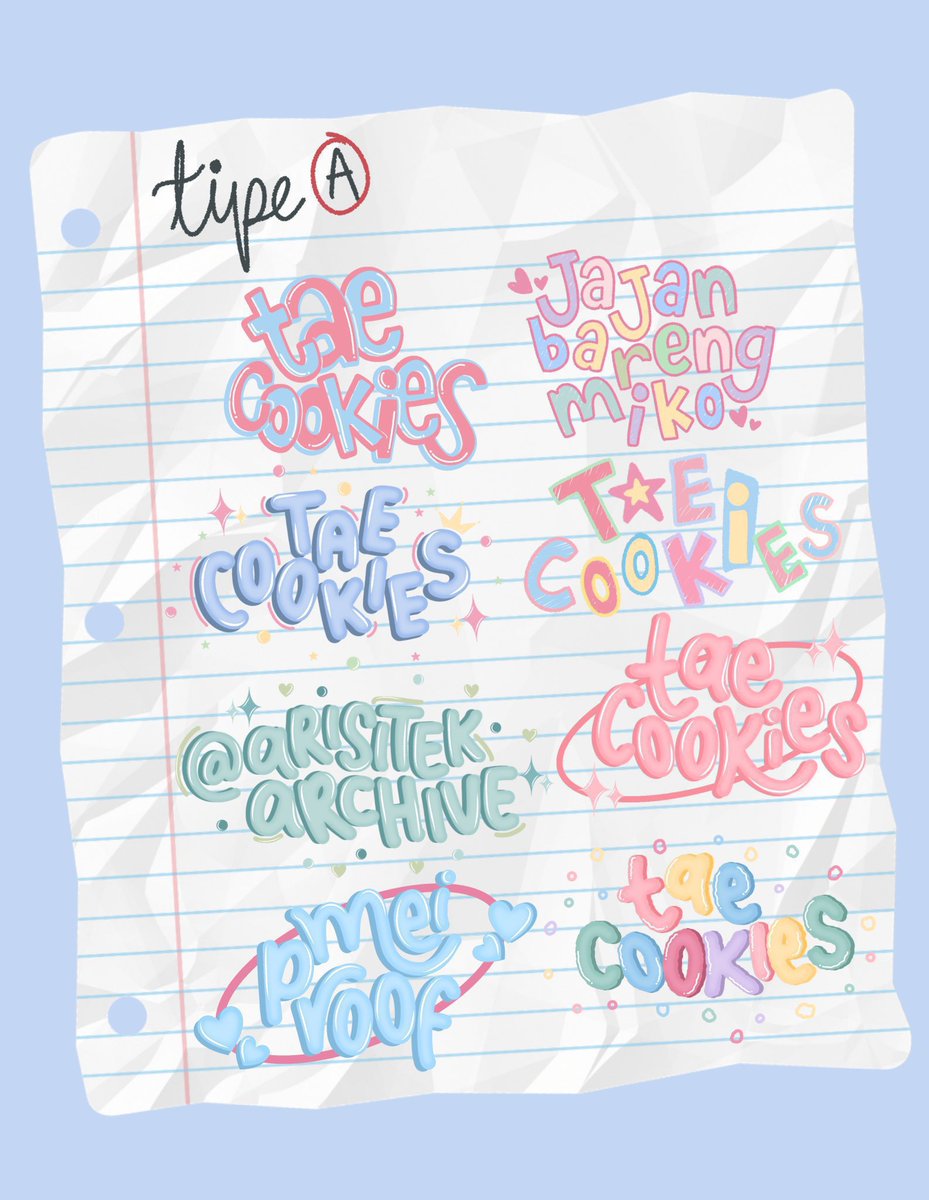 tipe A
tae
cookies
Jajan
bareng
miko
TAE
COOKIES
TAE
COOKiES
@ARISITEK
ARCHIVE
tae
cookies
mei
proof
tae
COOKIES